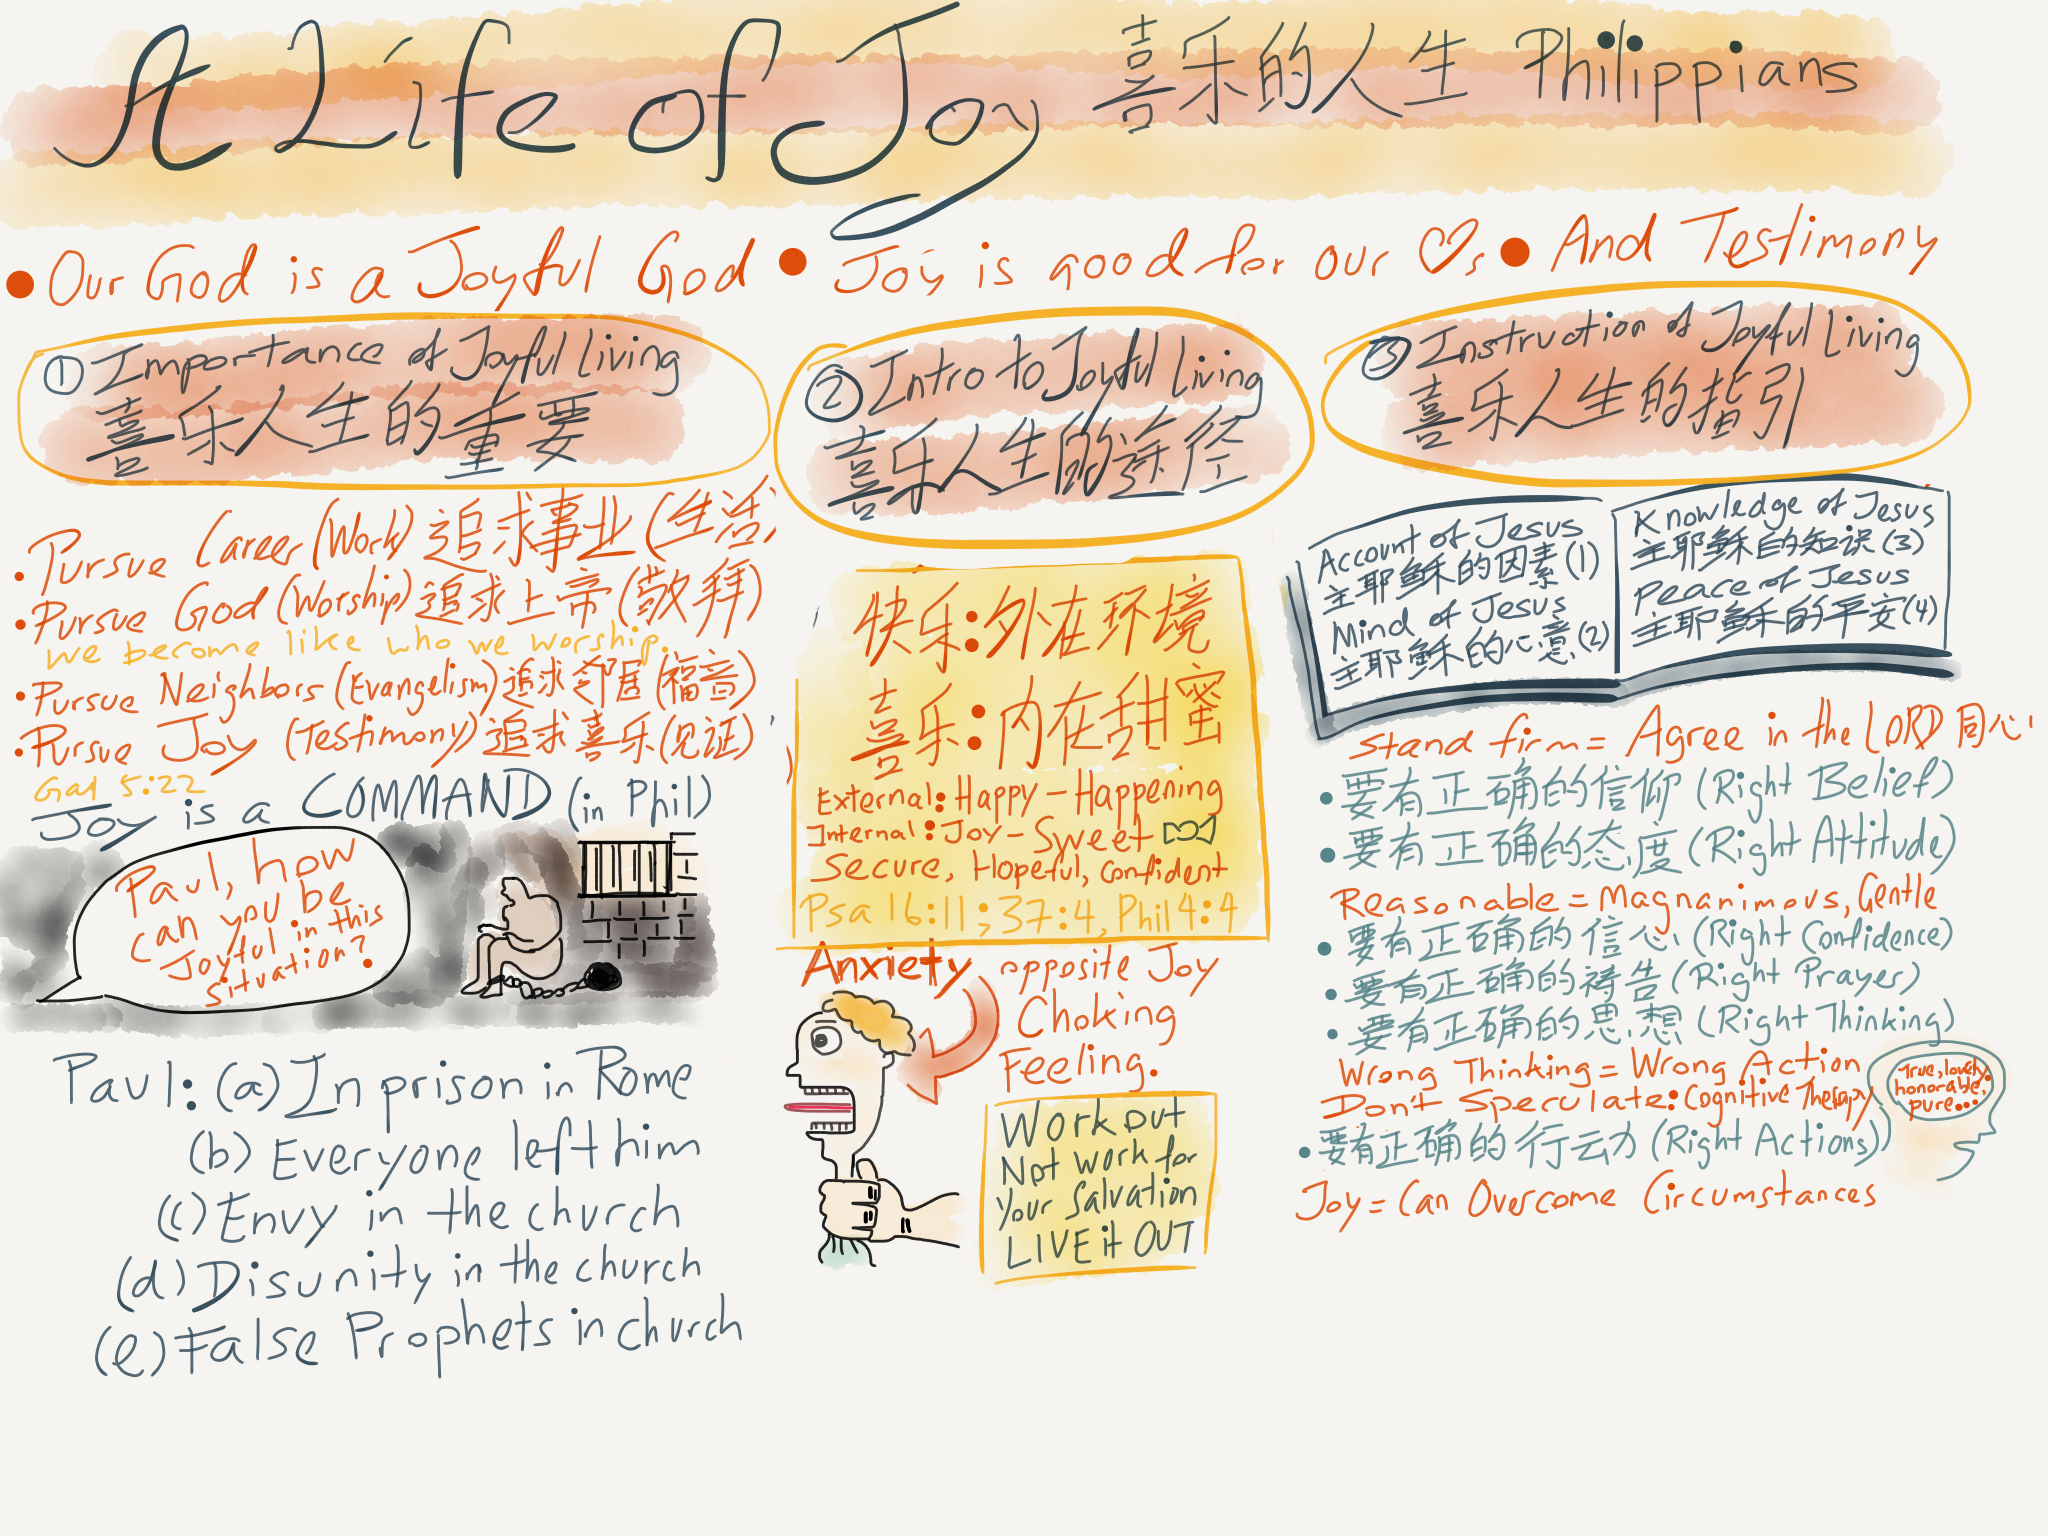 A Life of Joy 喜乐的人生 Philippians
• Our God is a Joyful God • Joy is good for our ♡s • And Testimony
① Importance of Joyful Living
喜乐人生的重要
• Pursue Career (Work) 追求事业 (生活)
• Pursue God (Worship) 追求上帝 (敬拜)
We become like who we worship.
• Pursue Neighbors (Evangelism) 追求邻居 (福音)
• Pursue Joy (Testimony) 追求喜乐 (见证)
Gal 5:22
Joy is a COMMAND (in Phil)
Paul, how
can you be
Joyful in this
situation?
Paul: (a) In prison in Rome
(b) Everyone left him
(c) Envy in the church
(d) Disunity in the church
(e) False Prophets in church
② Intro to Joyful Living
喜乐人生的途径
快乐: 外在环境
喜乐: 内在甜蜜
External: Happy - Happening
Internal: Joy - Sweet
Secure, Hopeful, Confident
Psa 16:11; 37:4, Phil 4:4
Anxiety opposite Joy
Choking
Feeling.
Work out
Not work for
Your Salvation
LIVE it OUT
③ Instruction of Joyful Living
喜乐人生的指引
Account of Jesus
主耶稣的因素 (1)
Mind of Jesus
主耶稣的心意 (2)
Knowledge of Jesus
主耶稣的知识 (3)
Peace of Jesus
主耶稣的平安 (4)
Stand firm = Agree in the LORD 同心
• 要有正确的信仰 (Right Belief)
• 要有正确的态度 (Right Attitude)
Reasonable = Magnanimous, Gentle
• 要有正确的信心 (Right Confidence)
• 要有正确的祷告 (Right Prayer)
• 要有正确的思想 (Right Thinking)
Wrong Thinking = Wrong Action
Don't Speculate: Cognitive Therapy
True, lovely,
honorable,
pure...
• 要有正确的行动 (Right Actions)
Joy = Can Overcome Circumstances